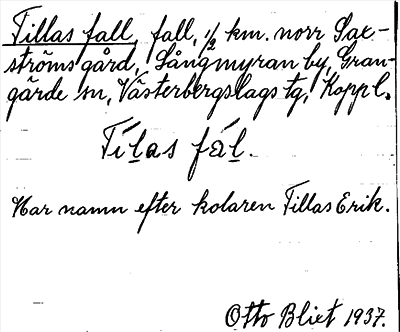 Tillas fall, fall, 1/2 km. norr Sax-
ströms gård, Sångmyran by, Gran-
gärde sn, Västerbergslags tg, Koppl.
Tílas fál.
Har namn efter kolaren Tillas Erik.
Otto Bliet 1937.